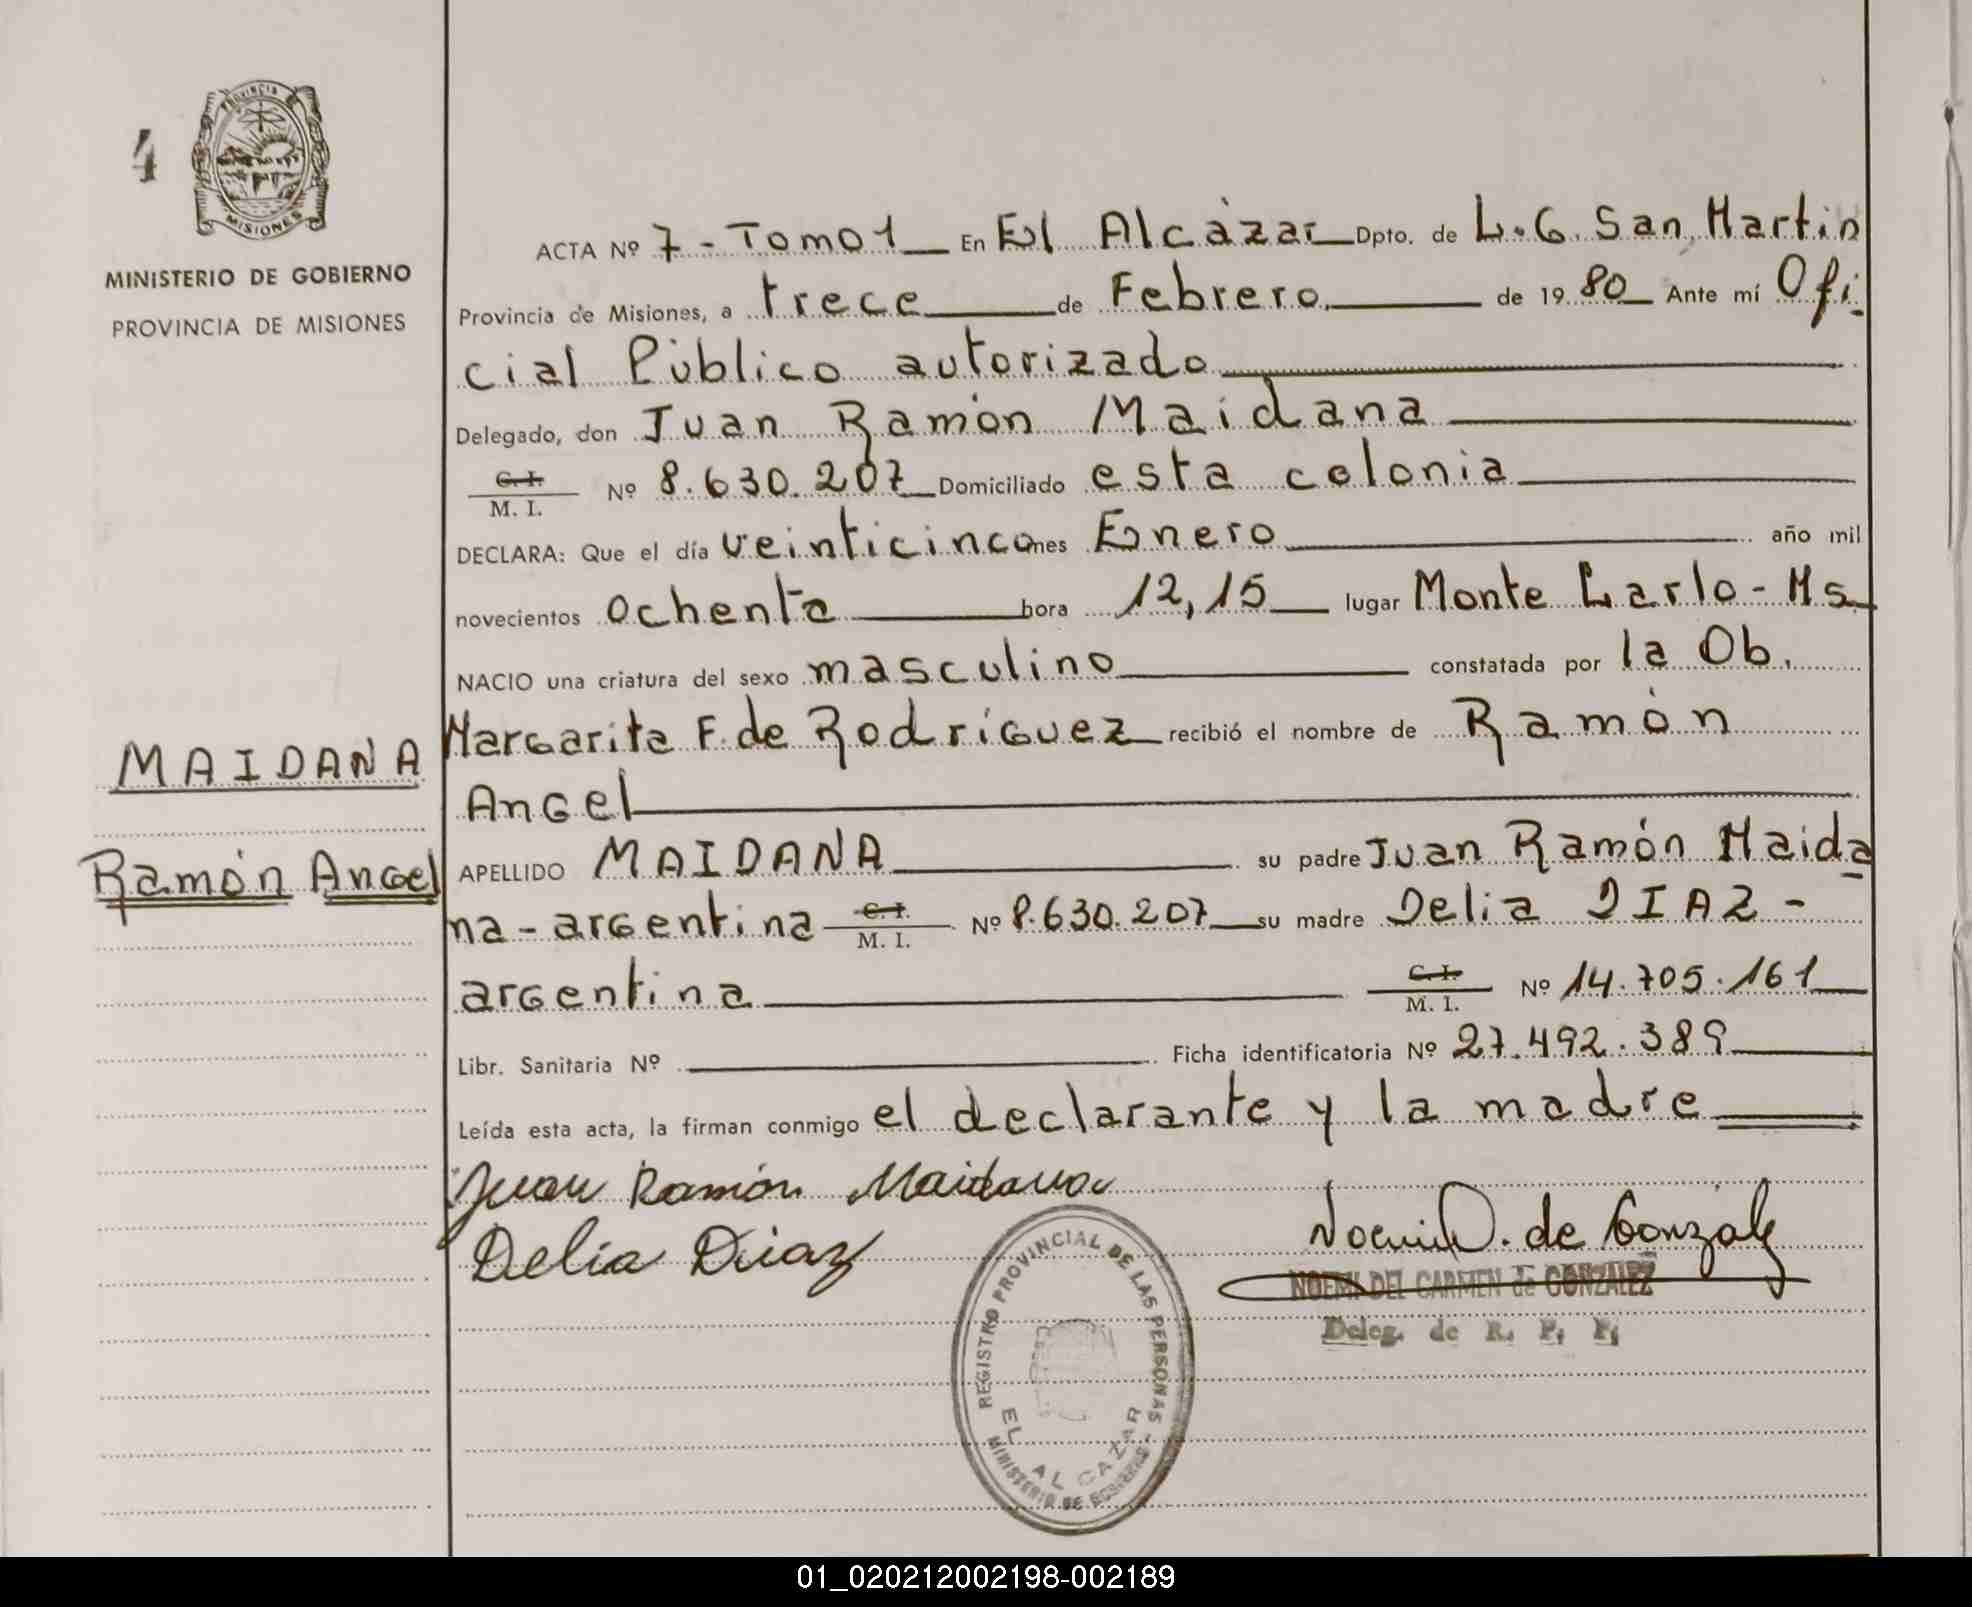 4
PROVINCIA DE
MISIONES
MINISTERIO DE GOBIERNO
PROVINCIA DE MISIONES
MAIDANA
Ramón Angel
ACTA Nº 7 - Tomo 1 En El Alcázar Dpto. de L. G. San Martin
Provincia de Misiones, a trece de Febrero de 1980 Ante mí Ofi
cial Público autorizado
Delegado, don Juan Ramón Maidana
C. I.
M. I. Nº 8.630.207 Domiciliado esta colonia
DECLARA: Que el día veinticinco mes Enero año mil
novecientos ochenta hora 12,15 lugar Monte Carlo - Ms
NACIO una criatura del sexo masculino constatada por la Ob.
Margarita F. de Rodríguez recibió el nombre de Ramón
Angel
APELLIDO MAIDANA su padre Juan Ramón Maida
na - argentina C. I. M. I. Nº 8.630.207 su madre Delia DIAZ -
argentina C. I. M. I. Nº 14.705.161
Libr. Sanitaria Nº Ficha identificatoria Nº 27.492.389
Leída esta acta, la firman conmigo el declarante y la madre
Juan Ramón Maidana
Delia Diaz
de Gonzalez
NOEMI DEL CARMEN de GONZALEZ
Deleg. de R. P. P.
REGISTRO PROVINCIAL DE LAS PERSONAS
EL ALCAZAR
MINISTERIO DE GOBIERNO
01_020212002198-002189